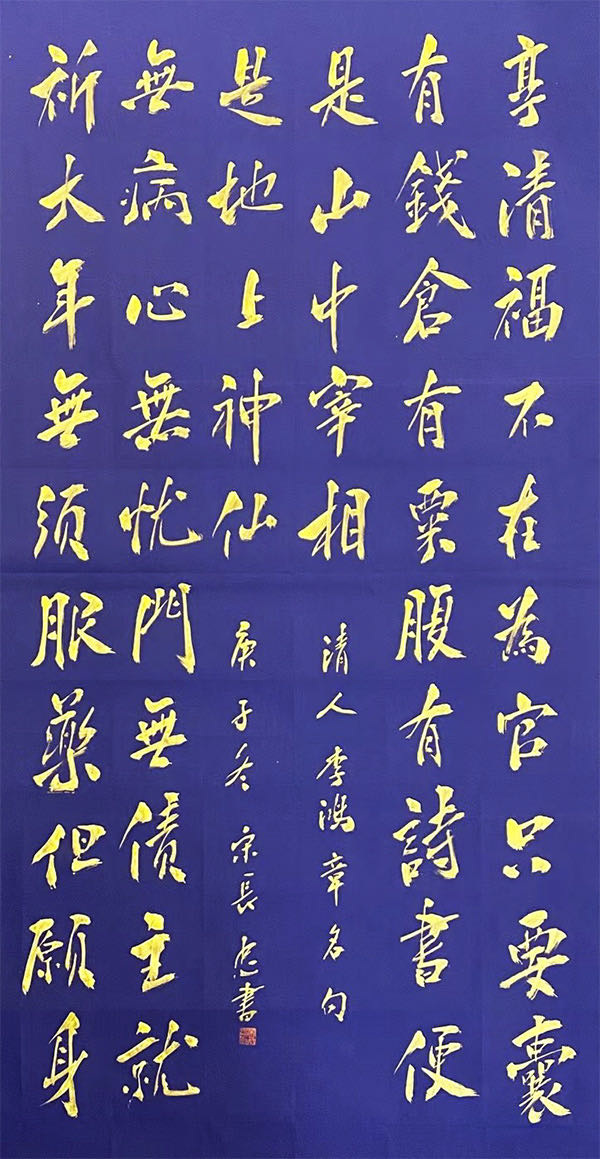 享清福不在為官只要囊
有錢倉有粟腹有詩書便
是山中宰相
清人李鴻章名句
祈大年無須服藥但願身
無病心無忧門無債主就
是地上神仙
庚子冬 宋長 書